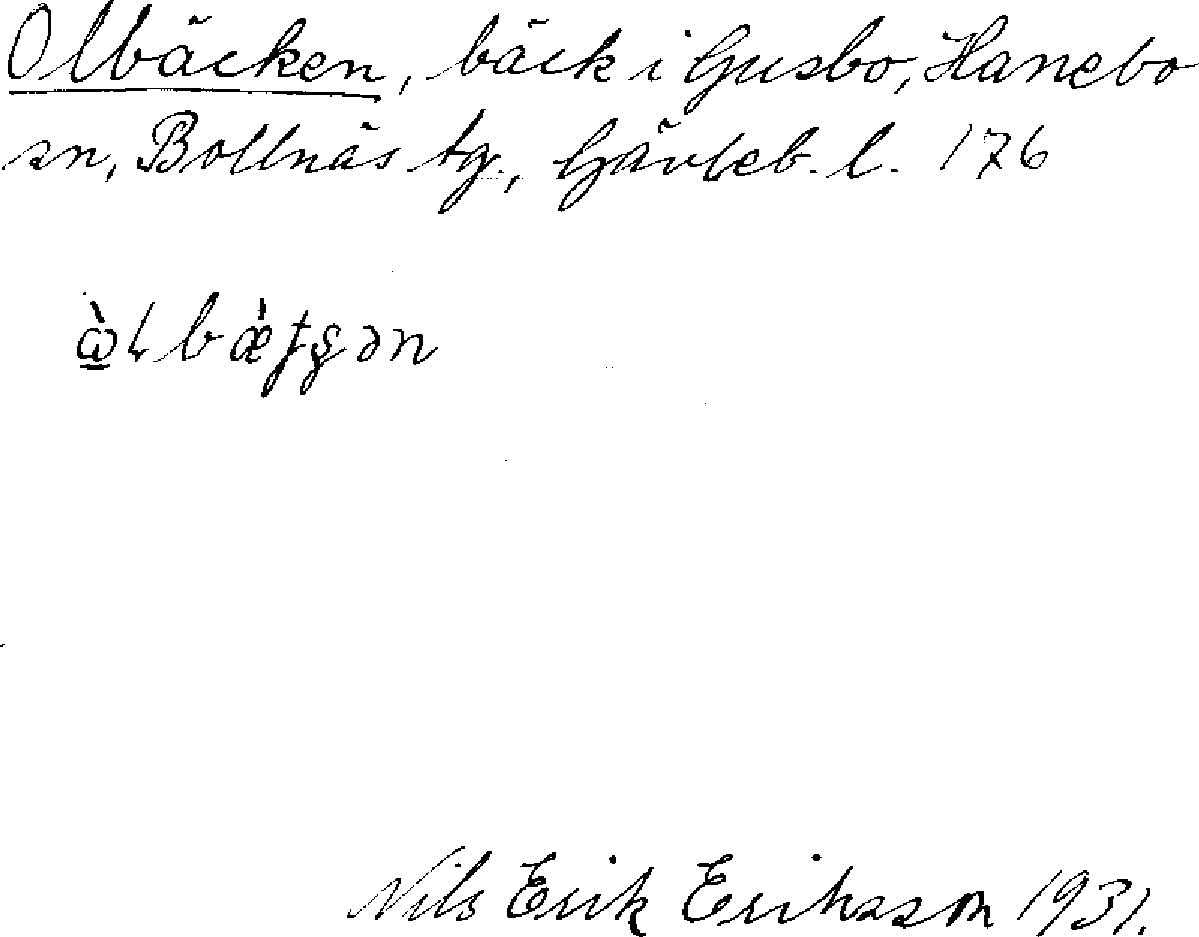 Olbäcken, bäck i Gusbo, Hanebo
sn, Bollnäs tg., Gävleb. l. 176
Nils Erik Eriksson 1931.